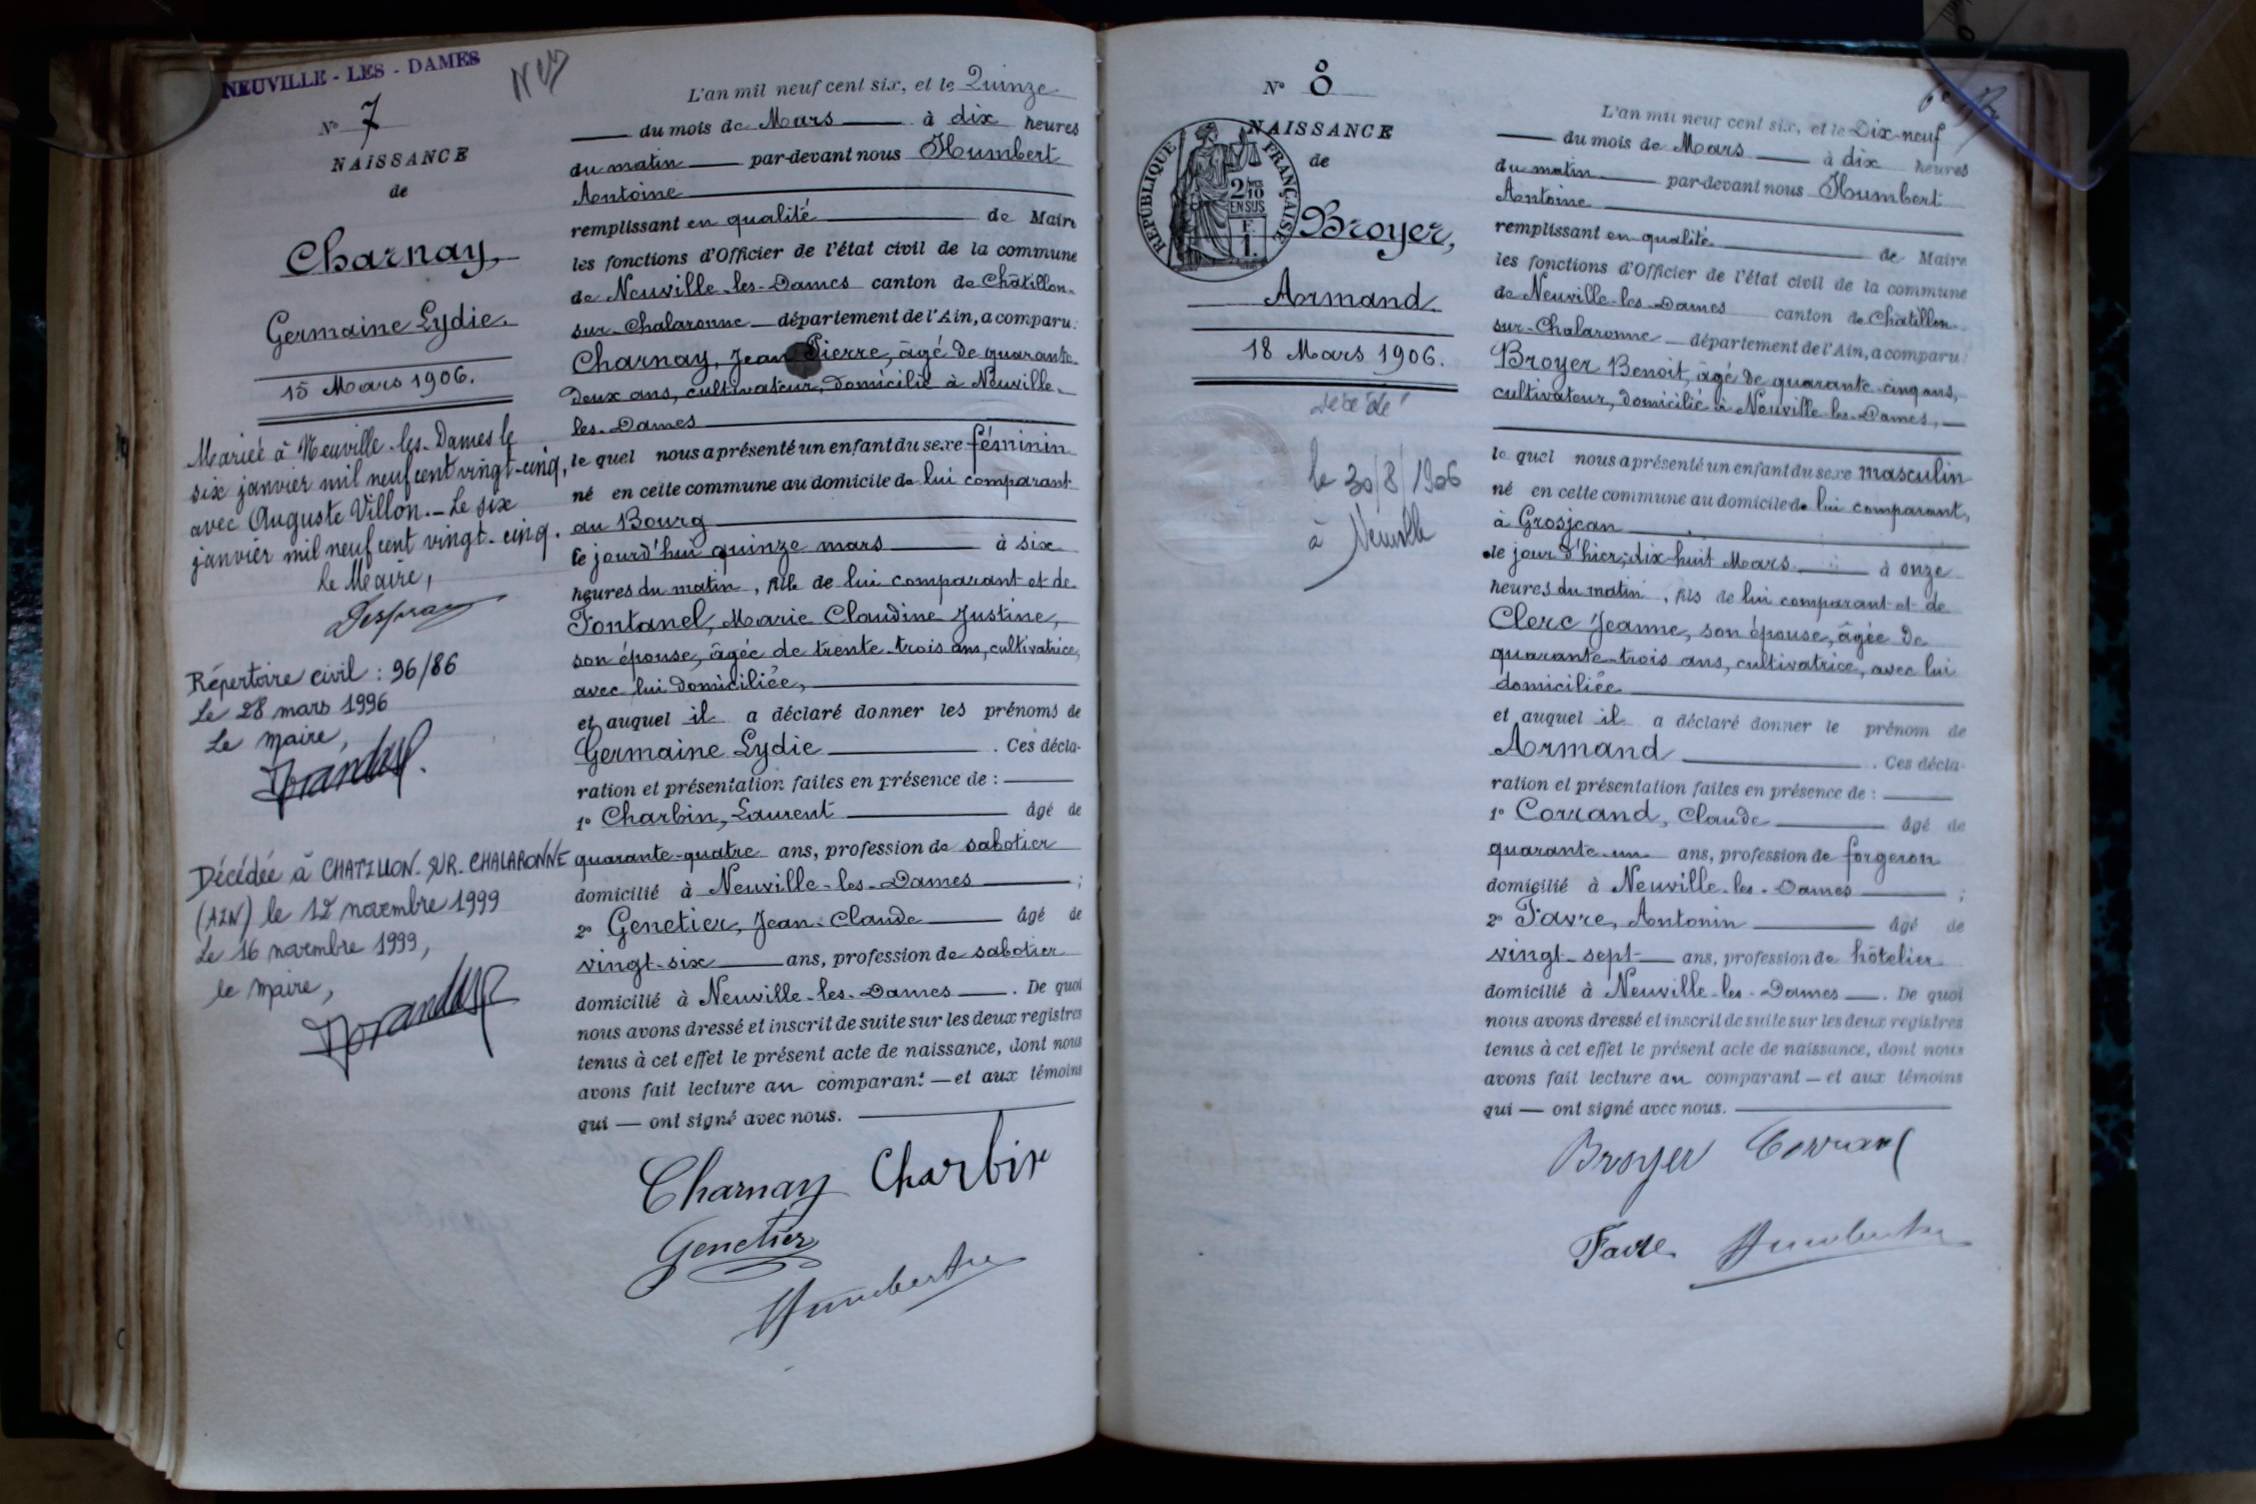 NEUVILLE - LES - DAMES
N° 7
NAISSANCE
de
Charnay,
Germaine Lydie.
15 Mars 1906.
Mariée à Neuville-les-Dames le
six janvier mil neuf cent vingt-cinq,
avec Auguste Villon. - Le six
janvier mil neuf cent vingt-cinq.
Le Maire,
Répertoire civil : 96/86
Le 28 mars 1996
Le Maire,
Décédée à CHATILLON-SUR-CHALARONNE
(AIN) le 12 novembre 1999
Le 16 novembre 1999,
le Maire,
L'an mil neuf cent six, et le Quinze
du mois de Mars à dix heures
du matin par-devant nous Humbert
Antoine
remplissant en qualité de Maire
les fonctions d'Officier de l'état civil de la commune
de Neuville-les-Dames canton de Châtillon-
sur-Chalaronne département de l'Ain, a comparu:
Charnay, Jean Pierre, âgé de quarante
deux ans, cultivateur, domicilié à Neuville-
les-Dames
le quel nous a présenté un enfant du sexe féminin
né en cette commune au domicile de lui comparant
au Bourg
le jourd'hui quinze mars à six
heures du matin, fille de lui comparant et de
Fontanel, Marie Claudine Justine,
son épouse, âgée de trente-trois ans, cultivatrice,
avec lui domiciliée,
et auquel il a déclaré donner les prénoms de
Germaine Lydie . Ces décla-
ration et présentation faites en présence de :
1° Charbin, Laurent âgé de
quarante-quatre ans, profession de sabotier
domicilié à Neuville-les-Dames ;
2° Genetier, Jean-Claude âgé de
vingt-six ans, profession de sabotier
domicilié à Neuville-les-Dames . De quoi
nous avons dressé et inscrit de suite sur les deux registres
tenus à cet effet le présent acte de naissance, dont nous
avons fait lecture au comparant — et aux témoins
qui — ont signé avec nous.
Charnay Charbin
Genetier
Humbert
N° 8
NAISSANCE
de
RÉPUBLIQUE FRANÇAISE
2/10
EN SUS
F.
1.
Broyer,
Armand
18 Mars 1906.
décédé
le 30/8/1906
à Neuville
L'an mil neuf cent six, et le Dix-neuf
du mois de Mars à dix heures
du matin par-devant nous Humbert
Antoine
remplissant en qualité de Maire
les fonctions d'Officier de l'état civil de la commune
de Neuville-les-Dames canton de Châtillon-
sur-Chalaronne département de l'Ain, a comparu:
Broyer Benoit, âgé de quarante-cinq ans,
cultivateur, domicilié à Neuville-les-Dames,
le quel nous a présenté un enfant du sexe masculin
né en cette commune au domicile de lui comparant,
à Grosjean
le jour d'hier, dix-huit Mars à onze
heures du matin, fils de lui comparant et de
Clerc Jeanne, son épouse, âgée de
quarante-trois ans, cultivatrice, avec lui
domiciliée
et auquel il a déclaré donner le prénom de
Armand . Ces décla-
ration et présentation faites en présence de :
1° Corrand, Claude âgé de
quarante-un ans, profession de forgeron
domicilié à Neuville-les-Dames ;
2° Favre, Antonin âgé de
vingt-sept ans, profession de hôtelier
domicilié à Neuville-les-Dames . De quoi
nous avons dressé et inscrit de suite sur les deux registres
tenus à cet effet le présent acte de naissance, dont nous
avons fait lecture au comparant — et aux témoins
qui — ont signé avec nous.
Broyer Corrand
Favre Humbert